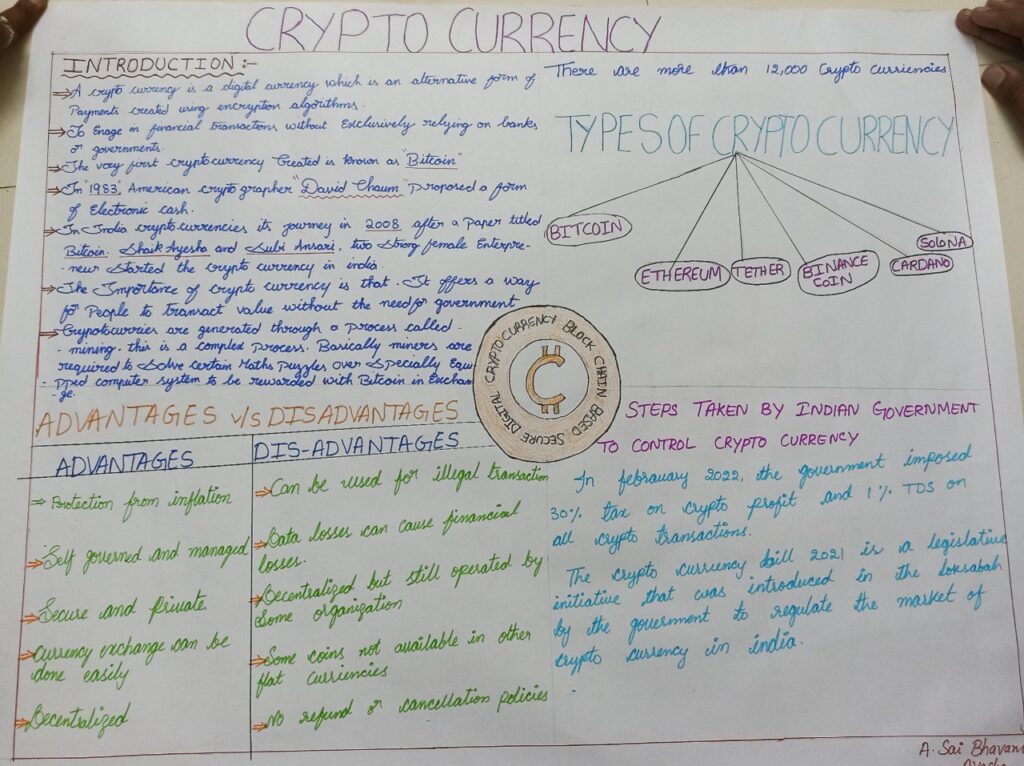 CRYPTO CURRENCY
INTRODUCTION :-
A crypto currency is a digital currency which is an alternative form of
Payments created using encryption algorithms.
To Enage in financial transactions without Exclusively relying on banks
or governments.
The very first cryptocurrency Created is known as "Bitcoin"
In "1983", American crypto grapher "David Chaum" Proposed a form
of Electronic cash.
In India crypto-currencies its journey in 2008 after a Paper titled
Bitcoin. Shaik Ayesha and Subi Ansari, two Strong female Enterpre-
-neur Started the crypto currency in india.
The Importance of crypto currency is that. It offers a way
for People to transact value without the need for government
Cryptocurries are generated through a process called.
-mining. this is a complex Process. Basically miners are
required to Solve certain Maths Puzzles over Specially Equi
-pped computer system to be rewarded with Bitcoin in Exchan
-ge.
There are more than 12,000 Crypto curriencies
TYPES OF CRYPTO CURRENCY
BITCOIN
ETHEREUM
TETHER
BINANCE
COIN
CARDANO
SOLONA
CRYPTO CURRENCY BLOCK CHAIN BASED SECURE DIGITAL
ADVANTAGES v/s DISADVANTAGES
ADVANTAGES
Protection from inflation
Self governed and managed
Secure and Private
Currency exchange can be
done easily
Decentralized
DIS-ADVANTAGES
Can be used for illegal transaction
Data losses can cause financial
losses.
Decentralized but still operated by
Some organization
Some coins not available in other
flat curriencies
No refund or cancellation policies
STEPS TAKEN BY INDIAN GOVERNMENT
TO CONTROL CRYPTO CURRENCY
In febrauary 2022, the government imposed
30% tax on crypto profit and 1% TDS on
all crypto transactions.
The crypto currency bill 2021 is a legislative
initiative that was introduced in the loksabah
by the government to regulate the market of
crypto currency in india.
A. Sai Bhavani